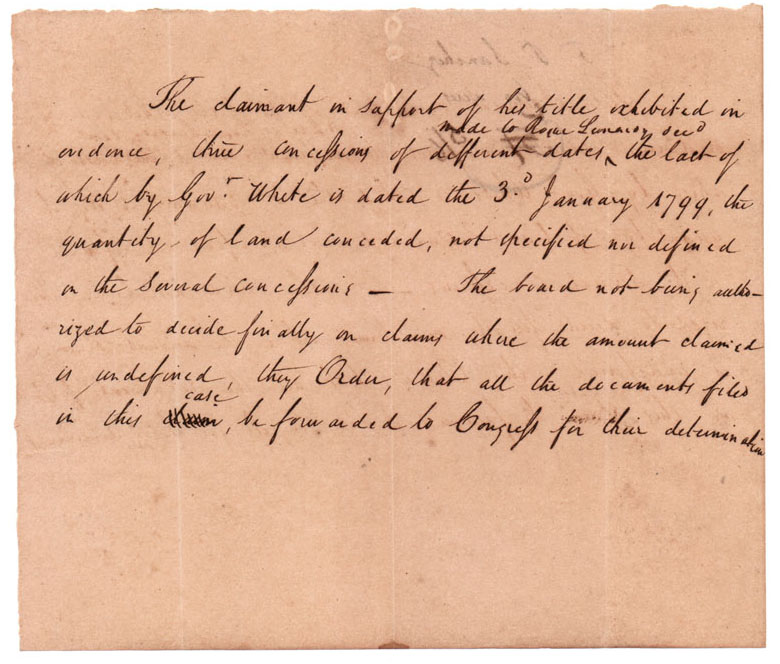 The claimant in support of his title exhibited in
made to Roque Leonardy decd
evidence, three concessions of different dates, the last of
which by Govr. White is dated the 3d January 1799, the
quantity of land conceded, not specified nor defined
in the several concessions — The board not being autho-
rized to decide finally on claims where the amount claimed
is undefined, they Order, that all the documents filed
case
in this claim, be forwarded to Congress for their determination